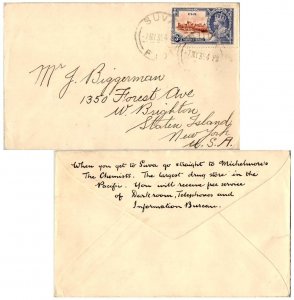 SUVA
FIJI
Mr J. Biggerman
1350 Forest Ave
W. Brighton
Staten Island
New York
U.S.A.
When you get to Suva go straight to Michelmore's
The Chemists. The largest drug store in the
Pacific. You will receive free service
of Darkroom, Telephones and
Information Bureau.